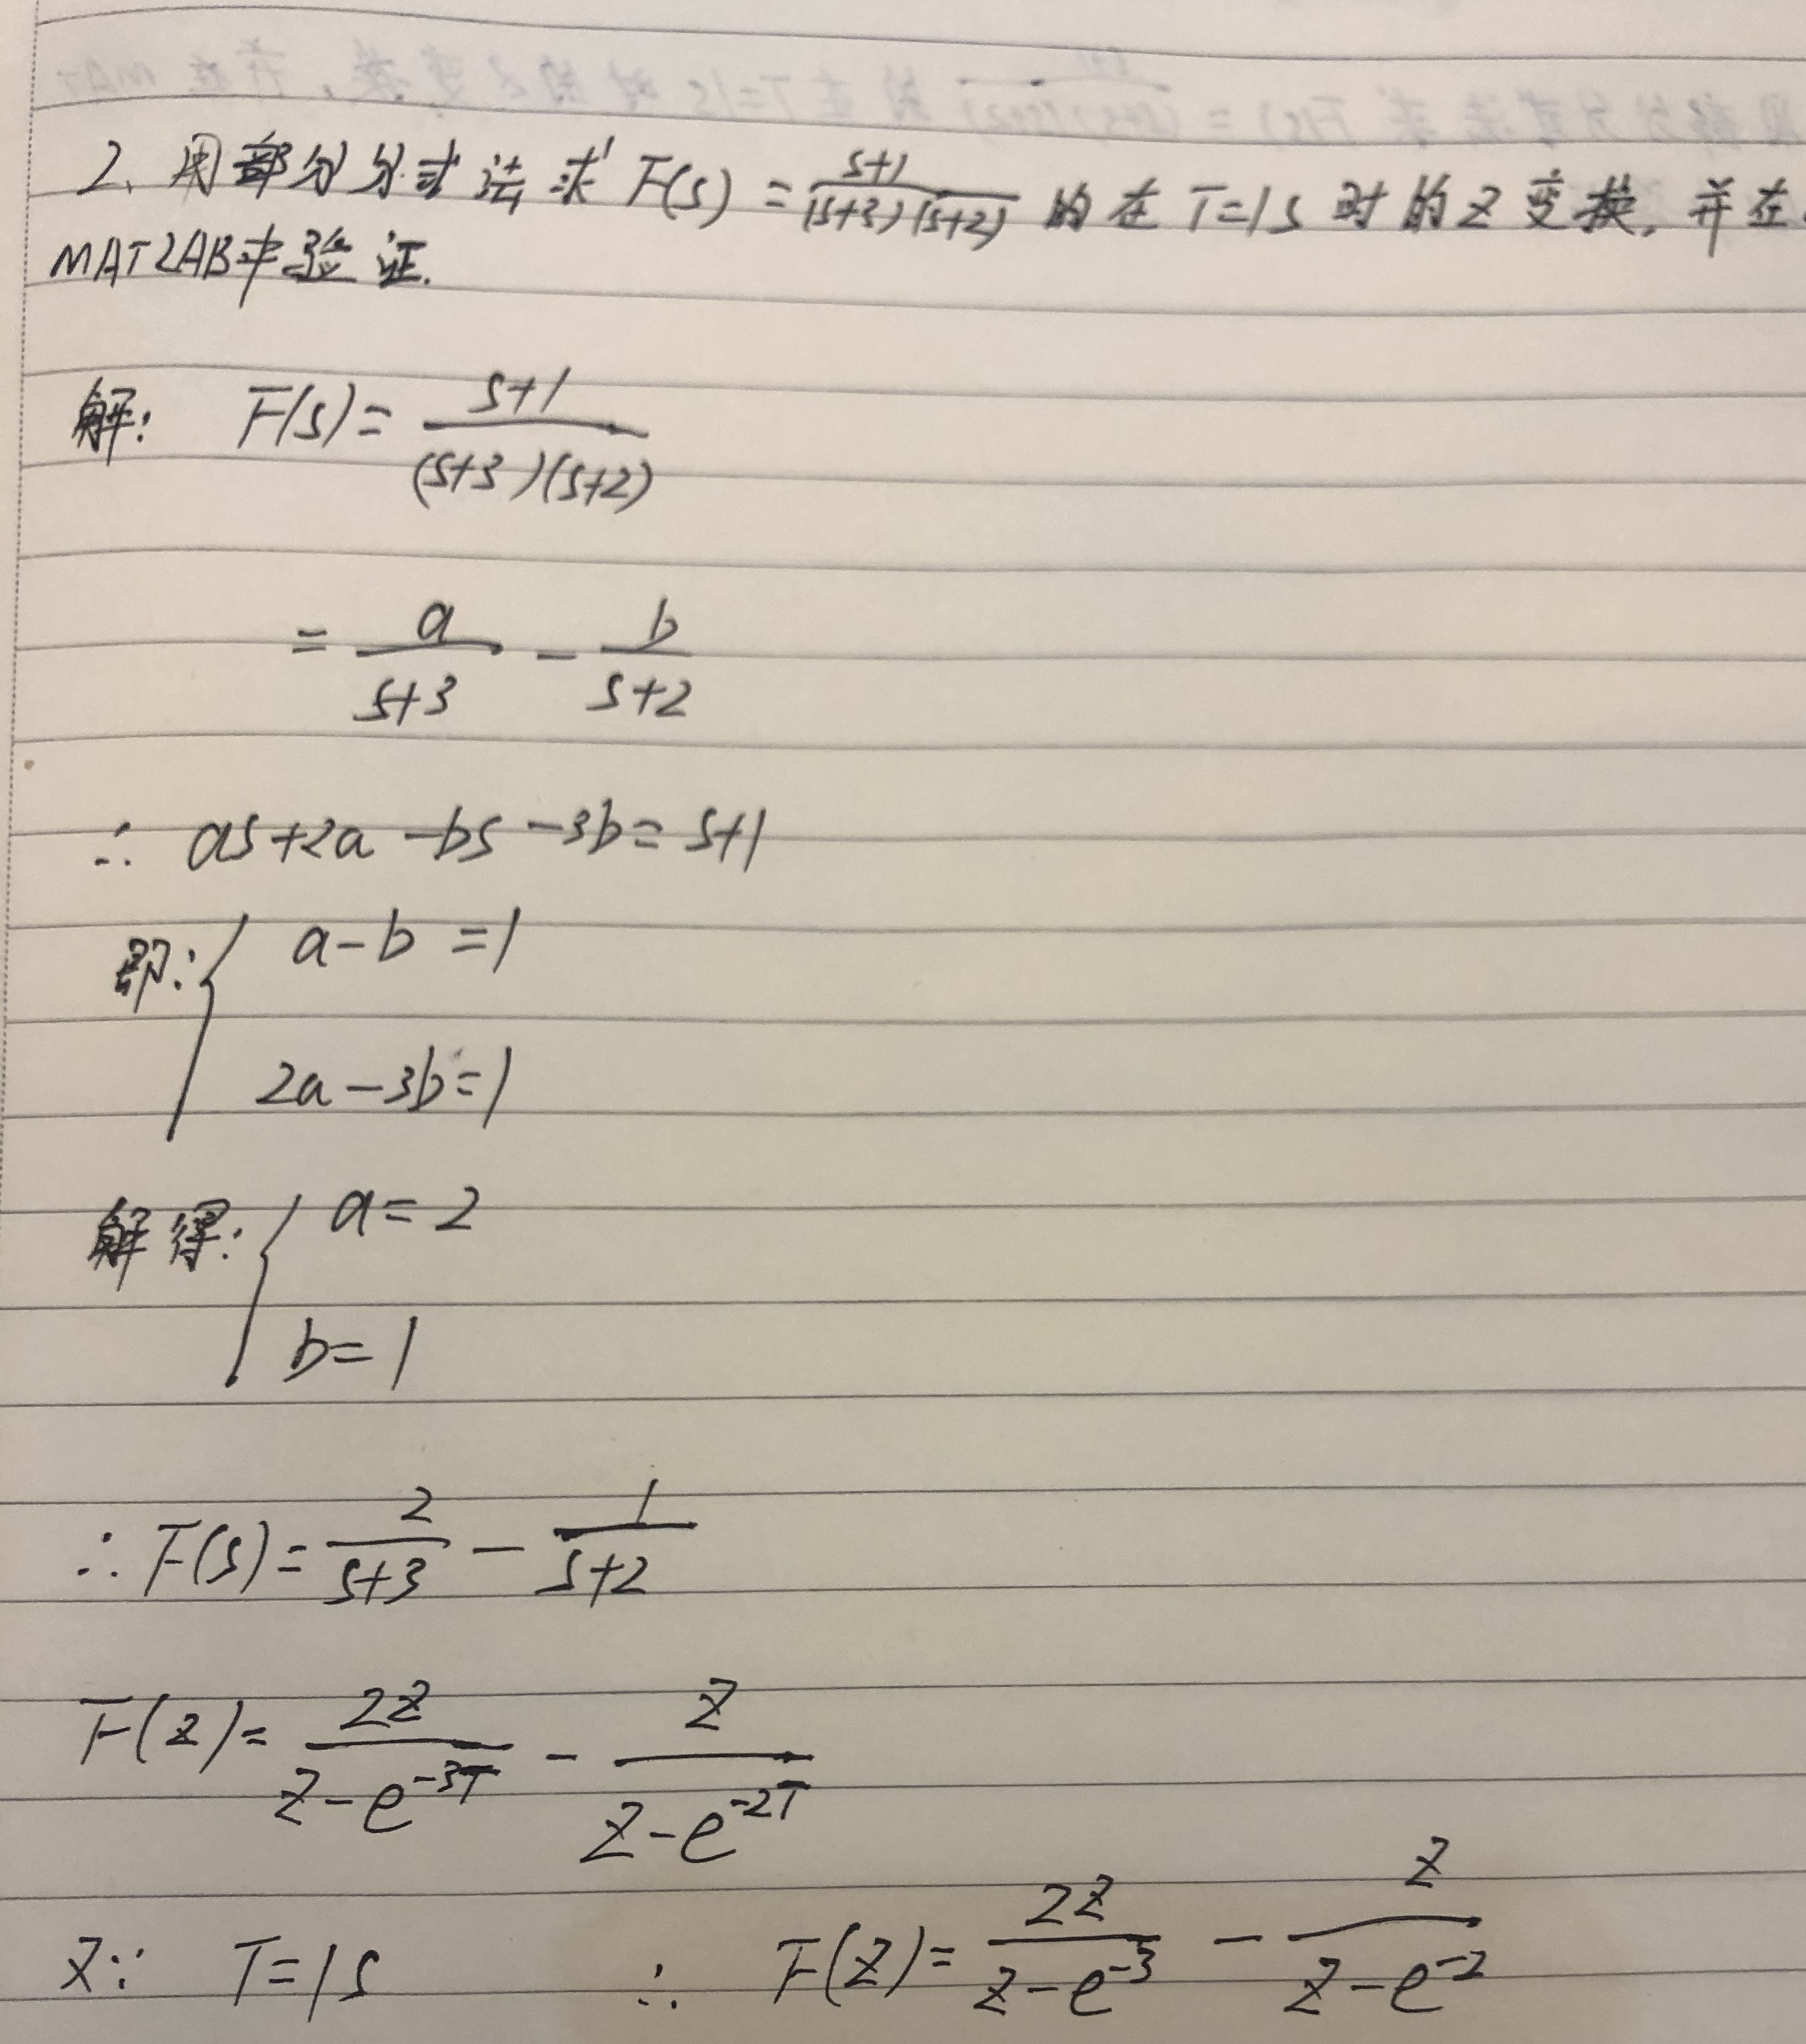 2、用部分分式法求F(s)=\frac{s+1}{(s+3)(s+2)}的在T=1s时的Z变换,并在
MATLAB中验证.
解: F(s)=\frac{s+1}{(s+3)(s+2)}
=\frac{a}{s+3}-\frac{b}{s+2}
∴ as+2a-bs-3b=s+1
即:{ a-b=1
2a-3b=1
解得:{ a=2
b=1
∴F(s)=\frac{2}{s+3}-\frac{1}{s+2}
F(z)=\frac{2z}{z-e^{-3T}}-\frac{z}{z-e^{-2T}}
又∵ T=1s ∴ F(z)=\frac{2z}{z-e^{-3}}-\frac{z}{z-e^{-2}}